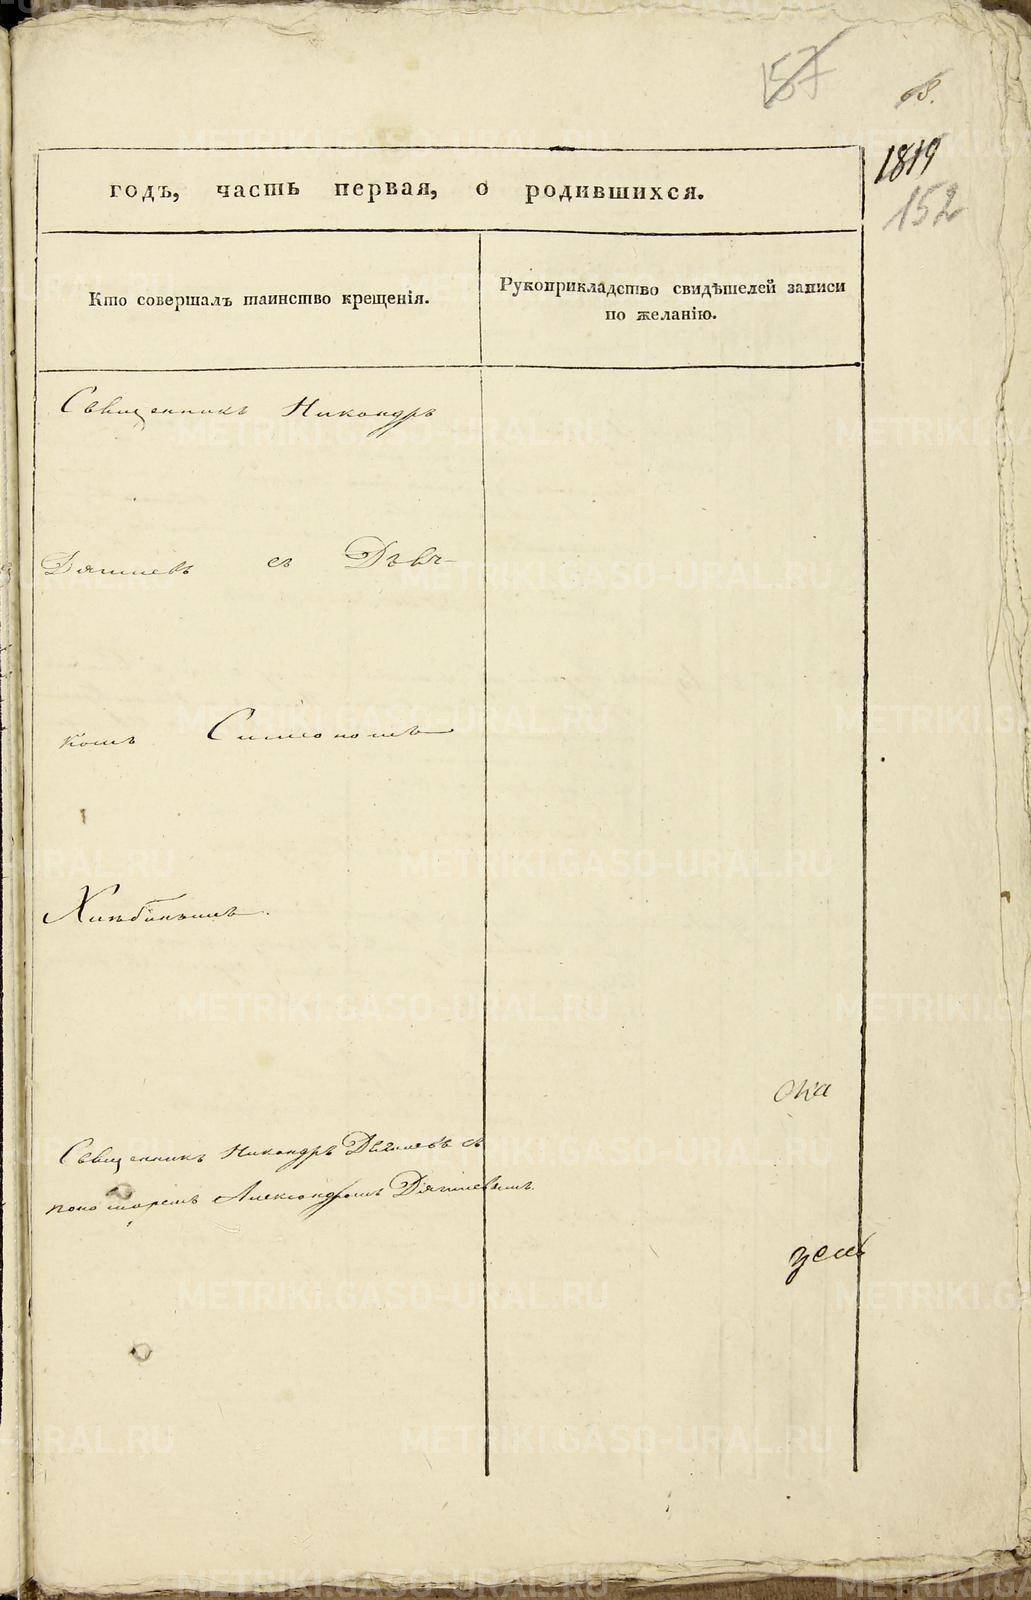 157
68.
1819
152
годъ, часть первая, о родившихся.
Кто совершалъ таинство крещенія.
Рукоприкладство свидѣтелей записи
по желанію.
Священникъ Никандръ
Дягилевъ съ Дьяч-
комъ Симеономъ
ока
Священникъ Никандръ Дягилевъ съ
пономаремъ Александромъ Дягилевымъ.
METRIKI.GASO-URAL.RU